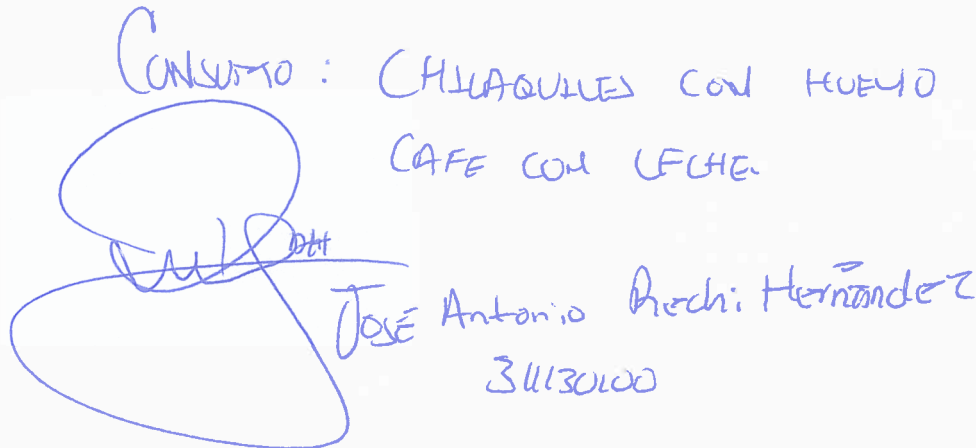 CONSUMO: CHILAQUILES CON HUEVO
CAFE CON LECHE.
JOSÉ Antonio Hernández